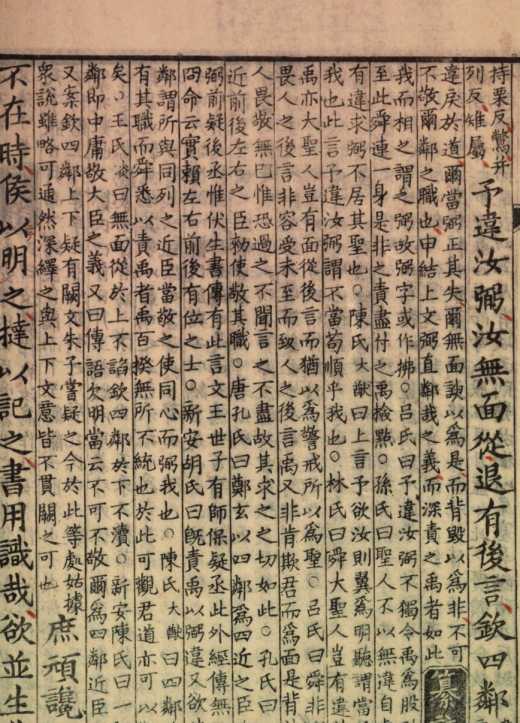 持栗反鷩并
列反雉屬
予違汝弼汝無面從退有後言欽四鄰
違戾於道爾當弼正其失爾無面諛以爲是而背毀以爲非不可
不敬爾鄰之職也申結上文弼直鄰哉之義而深責之禹者如此
我而相之謂之弼故弼字或作拂○呂氏曰予違汝弼不獨令禹爲股
至此舜連一身是非之責盡付之禹檢點○孫氏曰聖人不以無違自
有違求弼不居其聖也○陳氏大猷曰上言予欲汝則翼爲明聽謂當
我也此言予違汝弼謂不當苟順乎我也○林氏曰舜大聖人豈有違
禹亦大聖人豈有面從後言而猶以爲警戒所以爲聖○呂氏曰舜非
畏人之後言非容受未至而致人之後言禹又非肯欺君而爲面是背
人畏敬無已惟恐過之不聞言之不盡故其求之之切如此○孔氏曰
近前後左右之臣勑使敬其職○唐孔氏曰鄭玄以四鄰爲四近之臣
弼前疑後丞惟伏生書傳有此言文王世子有師保疑丞此外經傳無
冏命云實賴左右前後有位之士○新安胡氏曰旣責禹以弼違又欲
鄰謂所與同列之近臣當敬之使同心而弼我也○陳氏大猷曰四鄰
有其職而舜悉以責禹者禹百揆無所不統也於此可觀君道亦可以
矣○王氏炎曰無面從於上不諂欽四鄰於下不瀆○新安陳氏曰一
鄰即中庸敬大臣之義又曰傳語欠明當云不可不敬爾爲四鄰近臣
又案欽四鄰上下疑有闕文朱子嘗疑之今於此等處姑據
衆說雖略可通然深繹之與上下文意皆不貫闕之可也
庶頑讒
不在時侯以明之撻以記之書用識哉欲並生